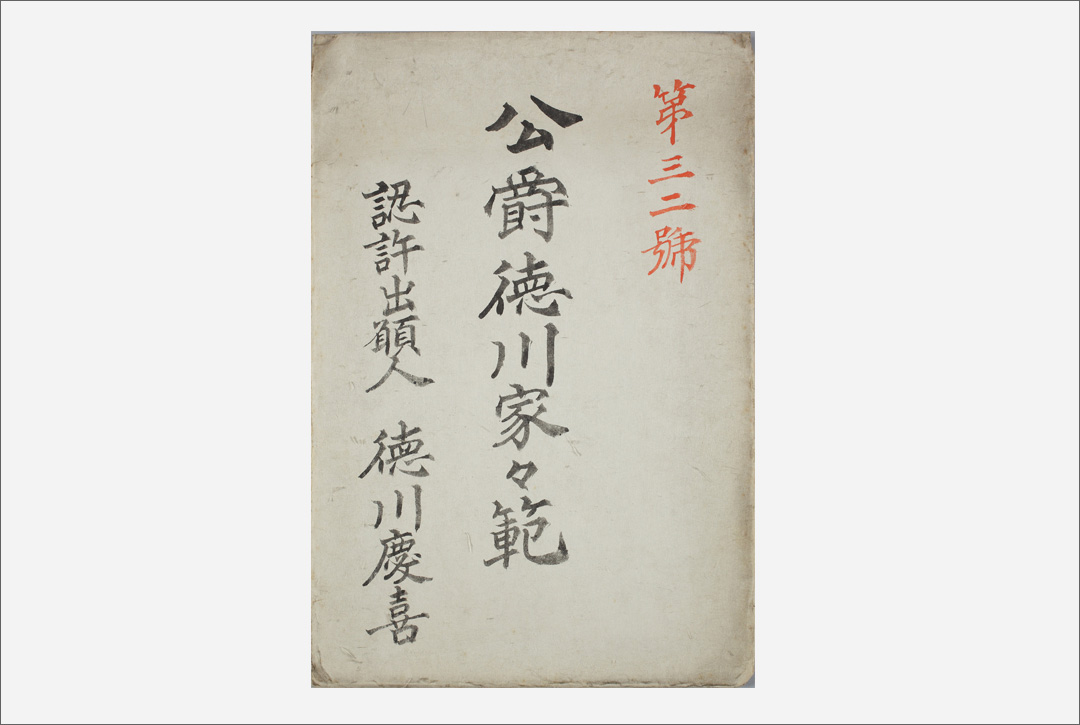 第三二號
公爵徳川家々範
認許出願人　徳川慶喜